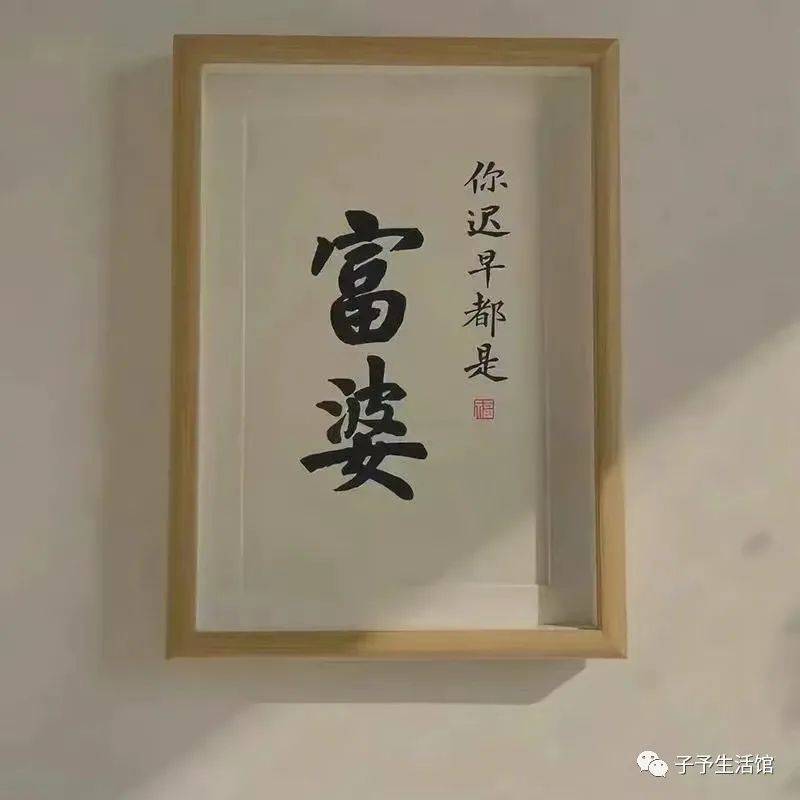 你迟早都是
富婆
福
子予生活馆